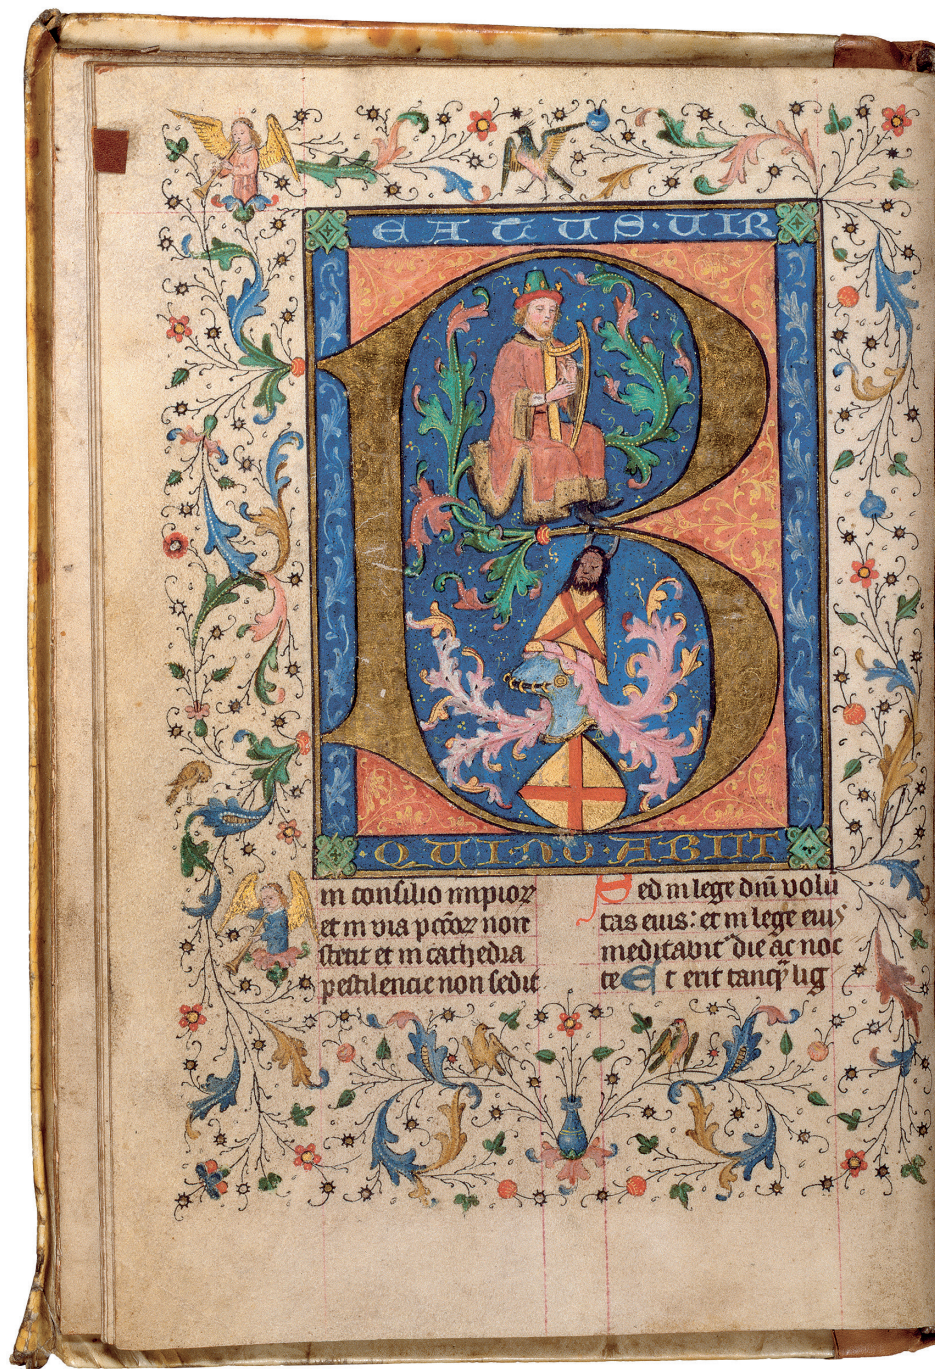 B
EATUS·UIR
·QUI·NO·ABIIT
in consilio impioꝝ
et in via pccōꝝ non
stetit et in cathedra
pestilencie non sedit
Sed in lege dnī volū
tas eius: et in lege eius
meditabit᷑ die ac noc
te Et erit tanqͣ lig